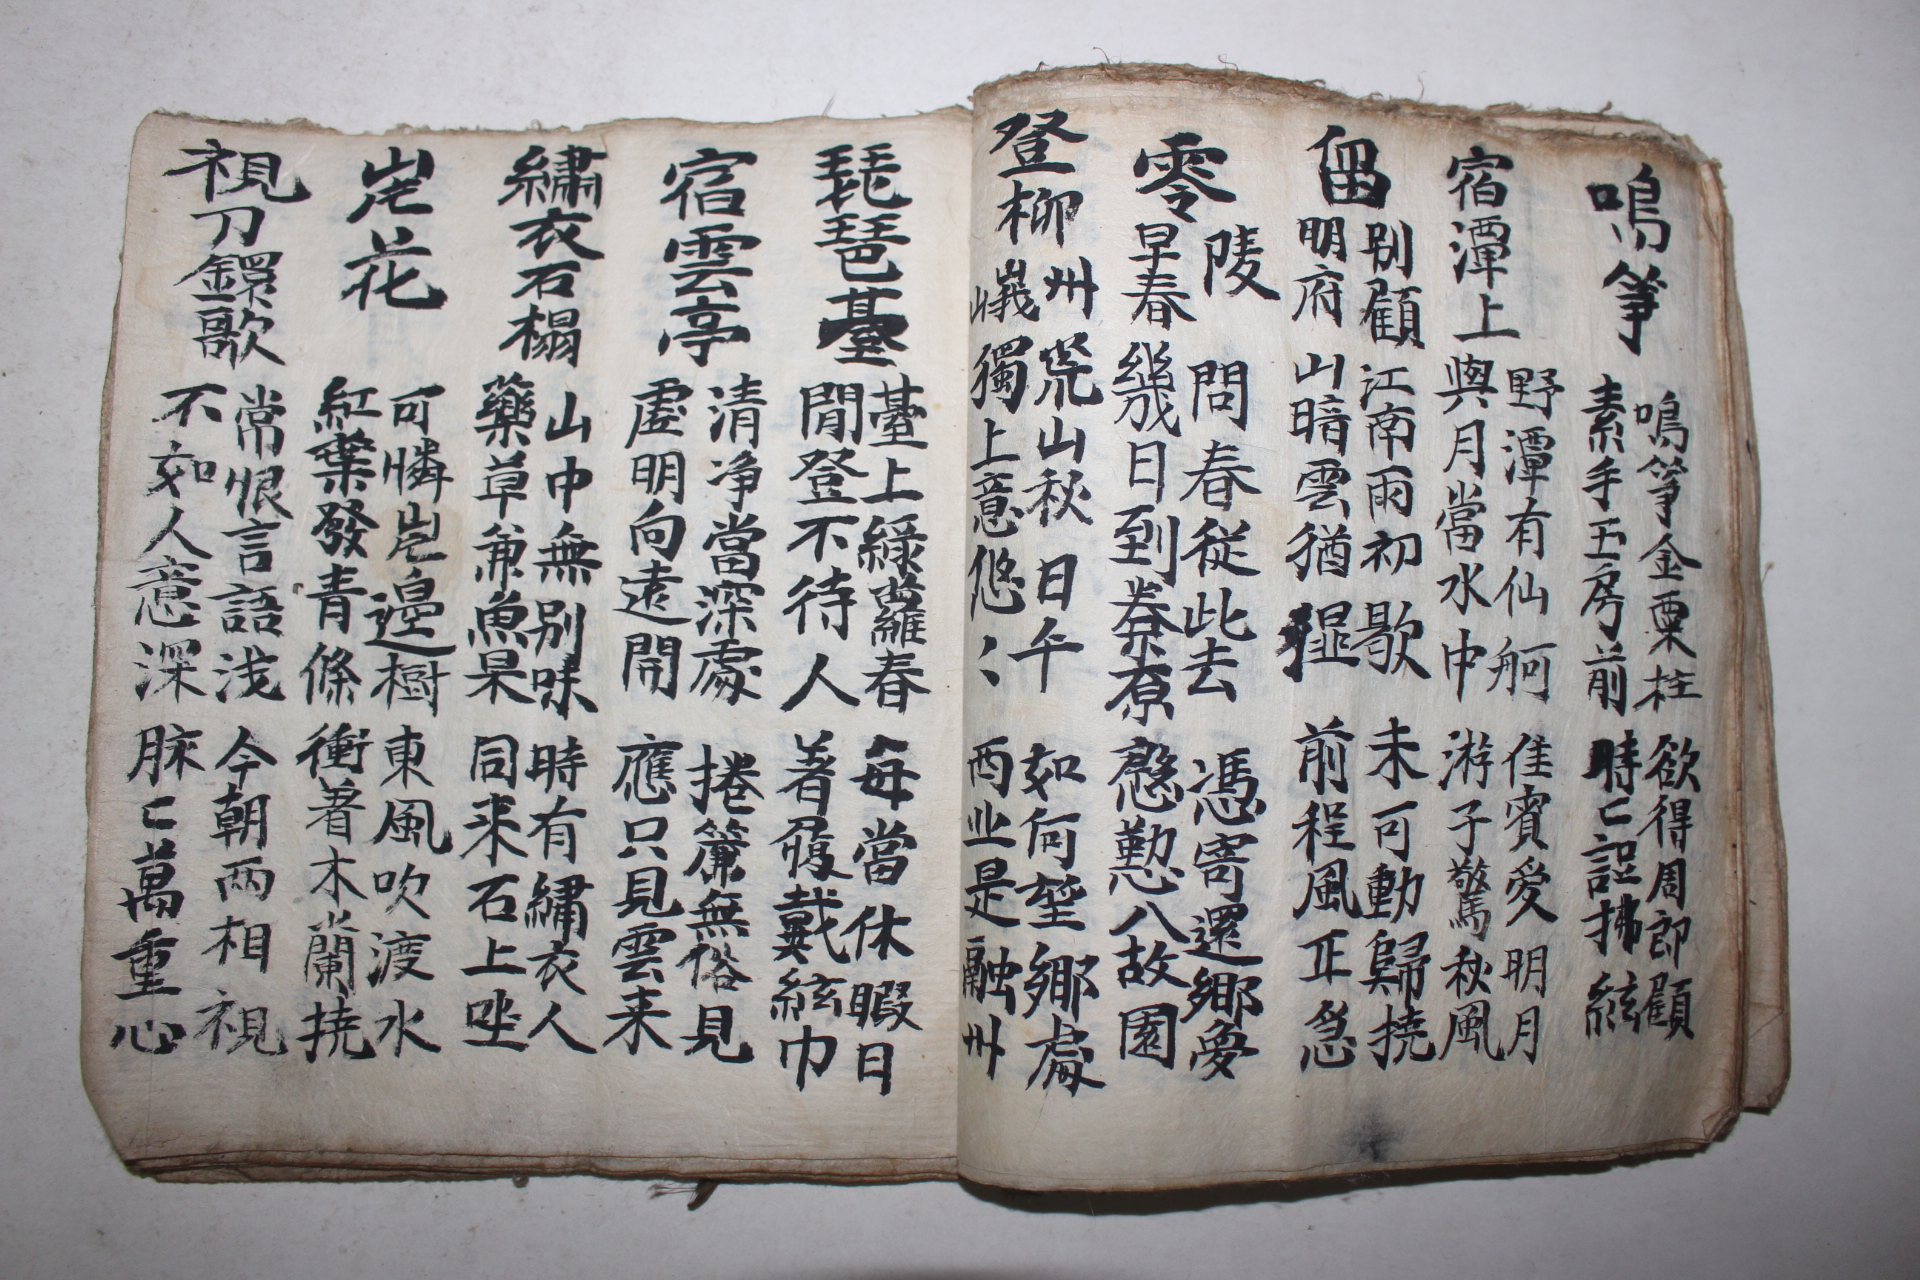 鳴箏
鳴箏金粟柱 欲得周郎顧
素手玉房前 時〻誤拂絃
宿潭上
野潭有仙舸 佳賓愛明月
與月當水中 游子驚秋風
留別顧明府
江南雨初歇 未可動歸橈
山暗雲猶濕 前程風正急
零陵早春
問春從此去 憑寄還鄉夢
幾日到秦原 慇懃入故園
登柳州峨
荒山秋日午 如何望鄉處
獨上意悠〻 西北是融州
琵琶臺
臺上綠蘿春 每當休暇日
閒登不待人 著屐戴紗巾
宿雲亭
清净當深處 捲簾無俗見
虛明向遠開 應只見雲来
繡衣石榻
山中無別味 時有繡衣人
藥草兼魚果 同来石上坐
岸花
可憐岸邊樹 東風吹渡水
紅葉發青條 衝著木蘭橈
視刀鐶歌
常恨言語浅 今朝兩相視
不如人意深 脉〻萬重心